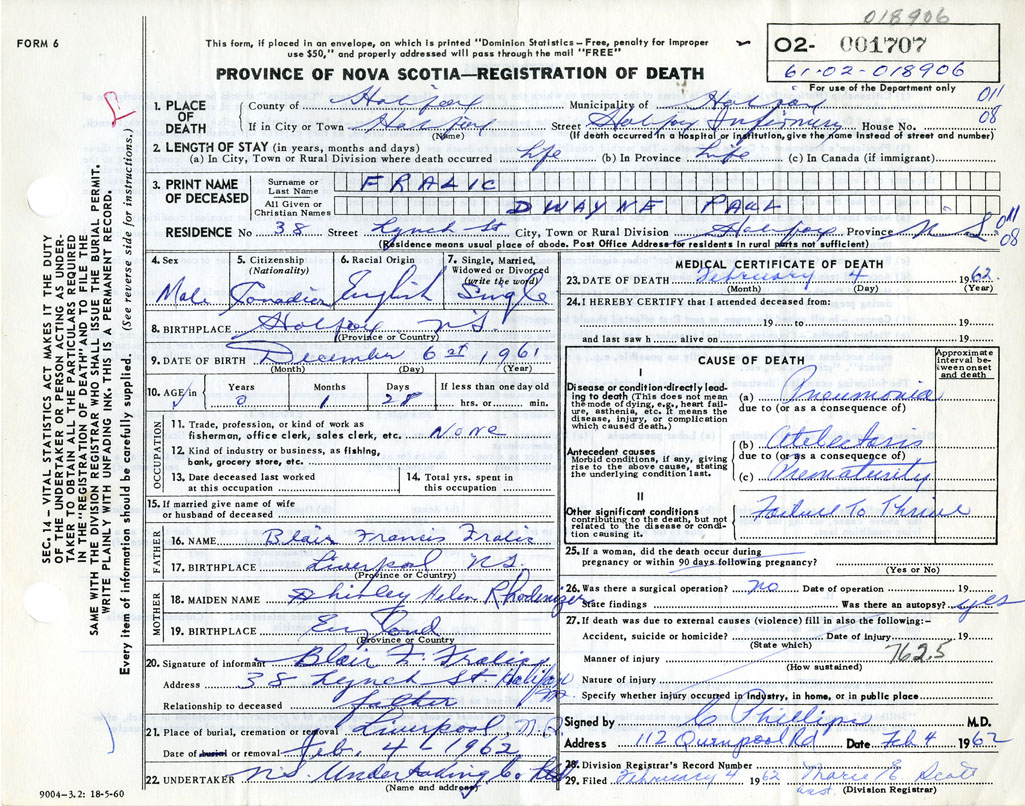 018906
FORM 6
This form, if placed in an envelope, on which is printed "Dominion Statistics – Free, penalty for improper
use $50," and properly addressed will pass through the mail "FREE"
02- 001707
61-02-018906
For use of the Department only
PROVINCE OF NOVA SCOTIA—REGISTRATION OF DEATH
011
08
1. PLACE OF DEATH
County of Halifax Municipality of Halifax
If in City or Town Halifax Street Halifax Infirmary House No.
(Name) (If death occurred in a hospital or institution, give the name instead of street and number)
2. LENGTH OF STAY (in years, months and days)
(a) In City, Town or Rural Division where death occurred Life (b) In Province Life (c) In Canada (if immigrant)
3. PRINT NAME OF DECEASED
Surname or Last Name FRALIC
All Given or Christian Names DWAYNE PAUL
RESIDENCE No 38 Street Lynch St City, Town or Rural Division Halifax Province N.S
(Residence means usual place of abode. Post Office Address for residents in rural parts not sufficient)
011
08
4. Sex Male
5. Citizenship (Nationality) Canadian
6. Racial Origin English
7. Single, Married, Widowed or Divorced (write the word) Single
8. BIRTHPLACE Halifax NS
(Province or Country)
9. DATE OF BIRTH December 6 1961
(Month) (Day) (Year)
10. AGE Years 0 Months 1 Days 28 If less than one day old hrs. or min.
OCCUPATION
11. Trade, profession, or kind of work as
fisherman, office clerk, sales clerk, etc. None
12. Kind of industry or business, as fishing,
bank, grocery store, etc.
13. Date deceased last worked at this occupation
14. Total yrs. spent in this occupation
15. If married give name of wife
or husband of deceased
FATHER
16. NAME Blair Francis Fralic
17. BIRTHPLACE Liverpool NS.
(Province or Country)
MOTHER
18. MAIDEN NAME Shirley Helen Rhodenizer
19. BIRTHPLACE England
(Province or Country)
20. Signature of informant Blair F. Fralic
Address 38 Lynch St Halifax
Relationship to deceased father
21. Place of burial, cremation or removal Liverpool, N.S.
Date of burial or removal Feb. 4 1962
22. UNDERTAKER N.S. Undertaking Co. Ltd
(Name and address)
9004-3.2: 18-5-60
MEDICAL CERTIFICATE OF DEATH
23. DATE OF DEATH February 4 1962
(Month) (Day) (Year)
24. I HEREBY CERTIFY that I attended deceased from:
19 to 19
and last saw h alive on 19
CAUSE OF DEATH
Approximate interval between onset and death
I
Disease or condition directly leading to death (This does not mean the mode of dying, e.g., heart failure, asthenia, etc. It means the disease, injury, or complication which caused death.)
(a) Pneumonia
due to (or as a consequence of)
Antecedent causes
Morbid conditions, if any, giving rise to the above cause, stating the underlying condition last.
(b) Atelectasis
due to (or as a consequence of)
(c) Prematurity
II
Other significant conditions
contributing to the death, but not related to the disease or condition causing it.
Failure To Thrive
25. If a woman, did the death occur during
pregnancy or within 90 days following pregnancy?
(Yes or No)
26. Was there a surgical operation? no Date of operation 19
State findings Was there an autopsy? yes
27. If death was due to external causes (violence) fill in also the following:–
Accident, suicide or homicide? Date of injury 19
(State which)
762.5
Manner of injury
(How sustained)
Nature of injury
Specify whether injury occurred in industry, in home, or in public place
Signed by C Phillips M.D.
Address 112 Quinpool Rd Date Feb 4 1962
28. Division Registrar's Record Number
29. Filed February 4 1962 Marie E Scott
asst. (Division Registrar)
SEC. 14 – VITAL STATISTICS ACT MAKES IT THE DUTY
OF THE UNDERTAKER OR PERSON ACTING AS UNDER-
TAKER TO OBTAIN ALL THE PARTICULARS REQUIRED
IN THE "REGISTRATION OF DEATH" AND TO FILE THE
SAME WITH THE DIVISION REGISTRAR WHO SHALL ISSUE THE BURIAL PERMIT.
WRITE PLAINLY WITH UNFADING INK. THIS IS A PERMANENT RECORD.
Every item of information should be carefully supplied. (See reverse side for instructions.)